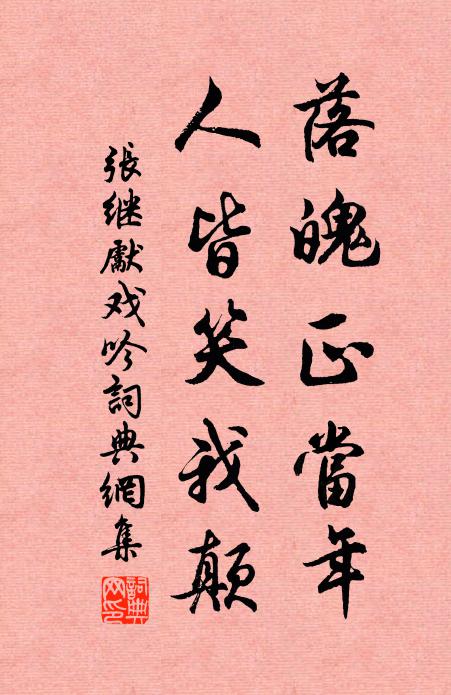 落魄正當年
人皆笑我顛
張継獻戏吟詞典網集
詞典网印